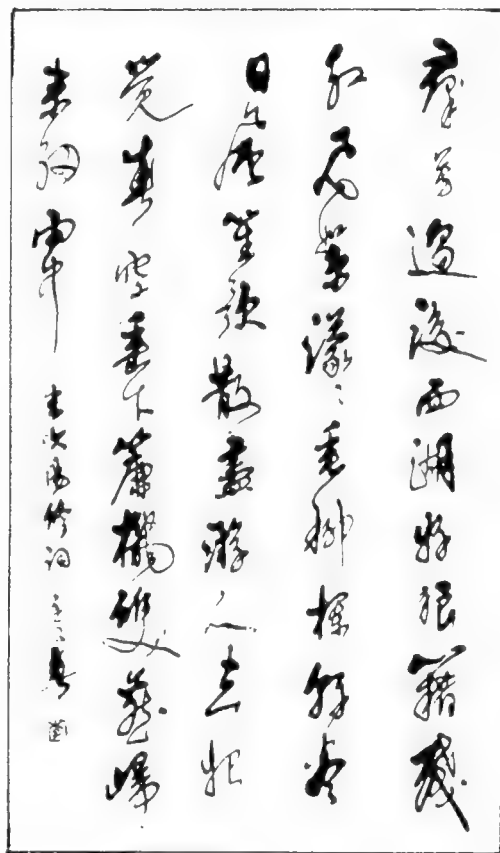 群芳過後西湖好狼籍殘
紅飛絮濛〻垂柳欄幹尽
日風笙歌散盡游人去始
覺春空垂下簾櫳雙燕歸
來細雨中 書歐陽修詞